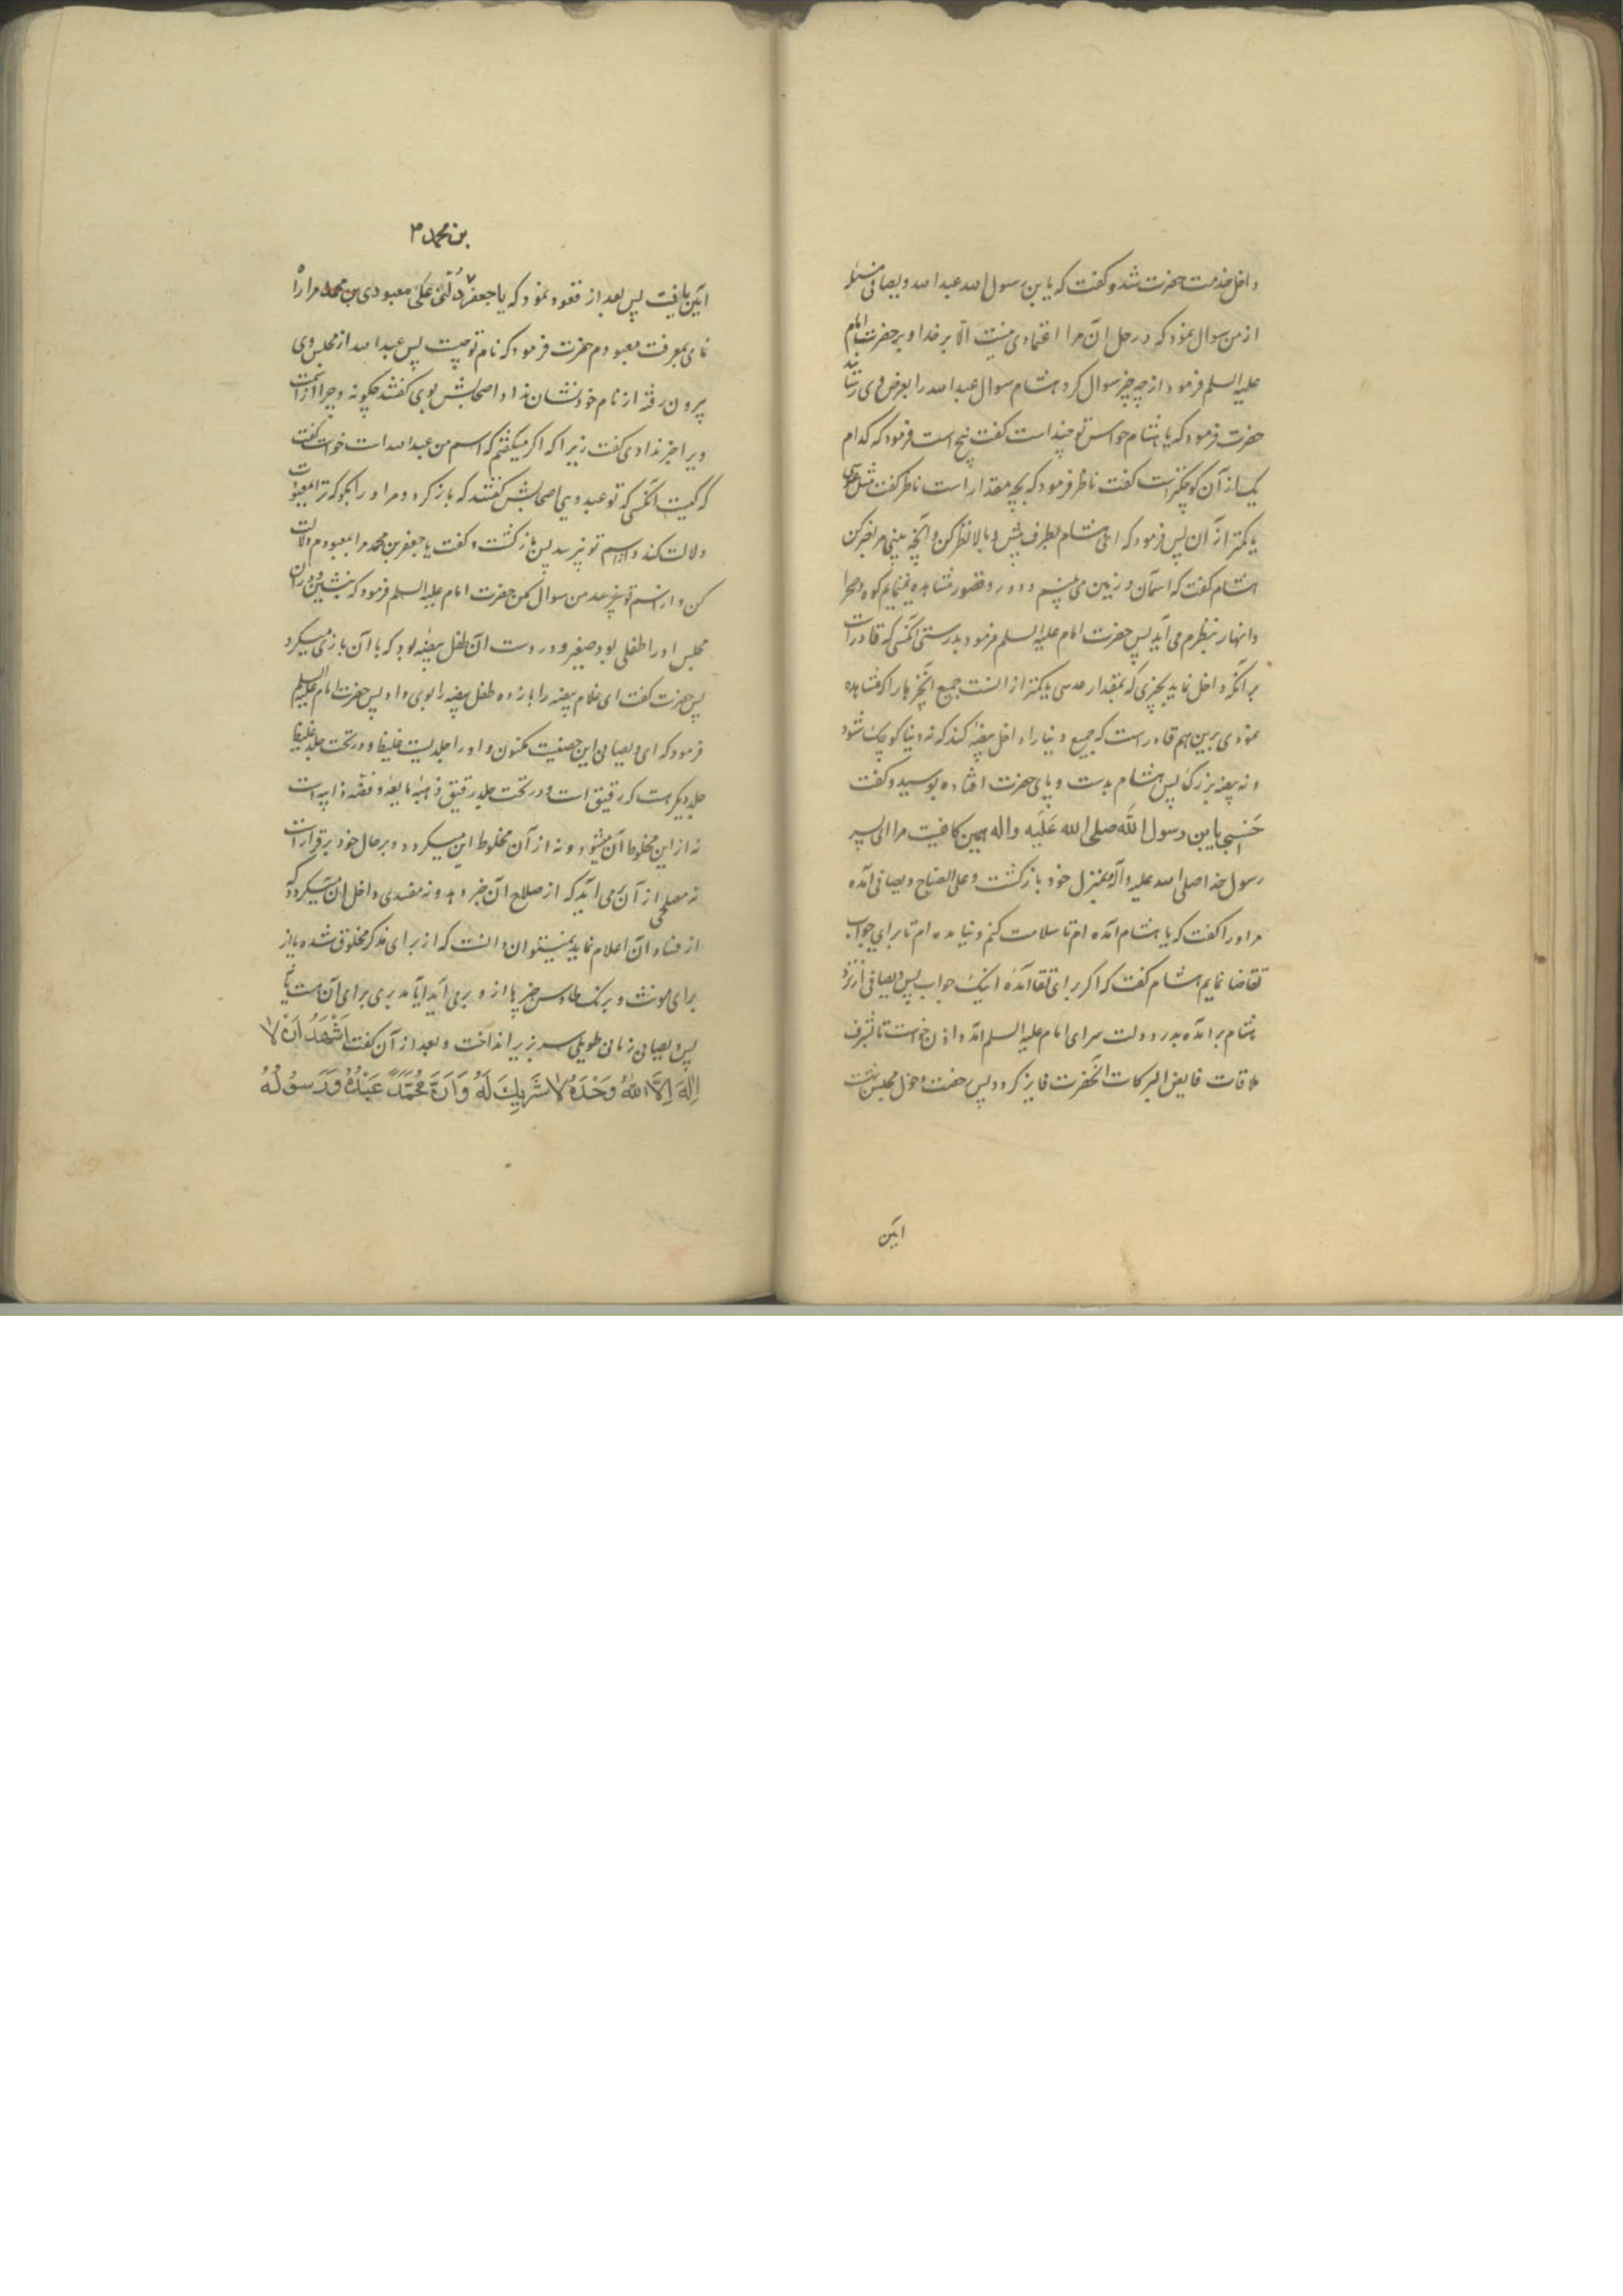 داخل خدمت حضرت شد و گفت که یابن رسول الله عبد الله ویصانی مسئله
از من سوال نمود که در حل آن مرا اعتمادی نیست الّا بر خدا و بر حضرت امام
علیه السلم فرمود از چه چیز سوال کرد هشام سوال عبد الله را بعرض وی رسانید
حضرت فرمود که یا هشام حواس تو چند است گفت پنج است فرمود که کدام
یک از آن کوچکتر است گفت ناظر فرمود که بچه مقدار است ناظر گفت مثل عدسی
یا کمتر از آن پس فرمود که ای هشام بطرف پیش و بالا نظر کن و آنچه بینی مرا خبر کن
هشام گفت که آسمان و زمین می بینم و دور و قصور مشاهده مینمایم کوه و صحرا
و انهار بنظرم می آید پس حضرت امام علیه السلم فرمود بدرستی آنکسی که قادر است
بر آنکه داخل نماید بچیزی که بمقدار عدسی یا کمتر از آنست جمیع آنچیزها را که مشاهده
نمودی برین هم قادر است که جمیع دنیا را داخل بیضه کند که نه دنیا کوچک شود
و نه بیضه بزرک پس هشام بدست و پای حضرت افتاده بوسید و گفت
حَسْبِی یابن رسول الله صلی الله عَلَیه واله همین کافیست مرا ای پسر
رسول خدا صلی الله علیه و آله بمنزل خود بازکشت و علی الصباح ویصانی آمده
مر اورا گفت که یا هشام آمده ام تا سلامت کنم و نیامده ام تا برای جواب
تقاضا نمایم هشام گفت که اگر برای تقا آمدهٔ اینک جواب پس ویصانی از نزد
هشام برآمده بدر دولت سرای امام علیه السلم آمد و اذن خواست تا بشرف
ملاقات فایض البرکات آنحضرت فایز کردد پس رخصت دخول مجلس بهشت
ایین
بن محمد م
آیین یافت پس بعد از قعود نمود که یا جعفر دُلَّنی عَلَی معبودی بن محمد مرا راه
نمای بمعرفت معبودم حضرت فرمود که نام تو چیست پس عبد الله از مجلس وی
بیرون رفته از نام خود نشان نداد اصحابش بوی گفتند چگونه و چرا از اسمت
ویرا خبر ندادی گفت زیرا که اگر میگفتم که اسم من عبد الله است خواست گفت
که کیست آنکسی که تو عبد ویی اصحابش گفتند که باز کرد و مر او را بگو که ترا بمعبودت
دلالت کند و از اسم تو نپرسد پس بازکشت و گفت یا جعفر بن محمد مرا بمعبودم دلالت
کن و از اسم تو من سوال مکن حضرت امام علیه السلم فرمود که بنشین و در آن
مجلس او را طفلی بود صغیر و در دست آن طفل بیضه بود که با آن بازی میکرد
پس حضرت گفت ای غلام بیضه را بما ده طفل بیضه را بوی داد پس حضرت امام علیه السلم
فرمود که ای ویصانی این حصنیست مکنون و او را جلدیست غلیظ و در تحت جلد غلیظ
جلد دیگر است که رقیق است و در تحت جلد رقیق ذهبهٔ مایعه و فضّه ذایبه است
نه از این مخلوط آن میشود و نه از آن مخلوط این میکردد و بر حال خود برقرار است
نه مصلحی از آن برمی آید که از صلاح آن خبر دهد و نه مفسدی داخل آن میکردد که
از فساد آن اعلام نماید نمیتوان دانست که از برای مذکر مخلوق شده یا از
برای مونث و برنک طاوس چیزها از و برمی آید آیا مدبری برای آن هست یا نه
پس ویصانی زمانی طویل سر بزیر انداخت و بعد از آن گفت اَشْهَدُ اَنْ لا
اِلٰهَ اِلَّا اللهُ وَحْدَهُ لا شَرِیكَ لَهُ وَاَنَّ مُحَمَّدً عَبْدُهُ وَرَسُولُهُ